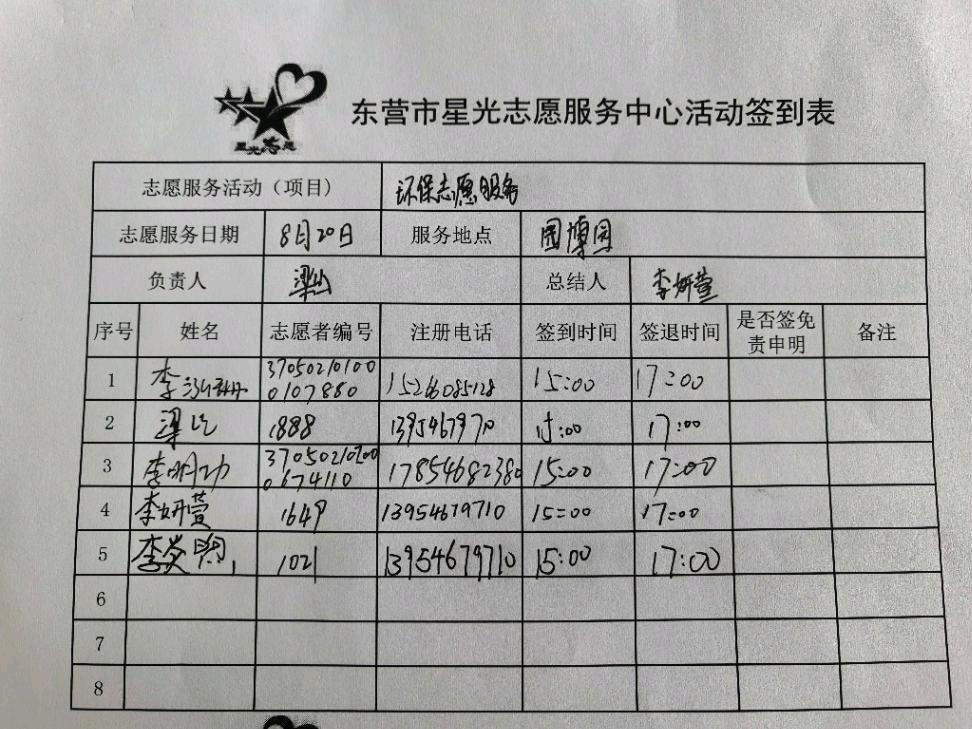 星光志愿
东营市星光志愿服务中心活动签到表
志愿服务活动（项目） 环保志愿服务
志愿服务日期 8月20日 服务地点 园博园
负责人 梁 总结人 李妍萱
序号 姓名 志愿者编号 注册电话 签到时间 签退时间 是否签免责申明 备注
1 李 37050210100 0107880 15266085128 15:00 17:00
2 梁 1888 13954679710 15:00 17:00
3 李明功 0674110 17854682380 15:00 17:00
4 李妍萱 1649 13954679710 15:00 17:00
5 李炎 1021 13954679710 15:00 17:00
6
7
8